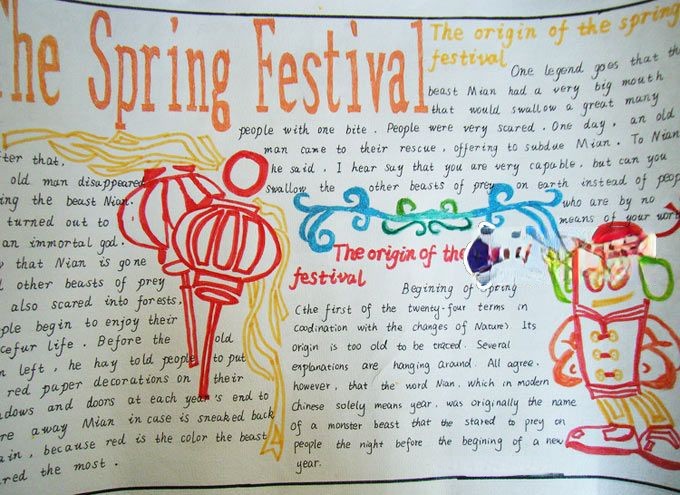 The Spring Festival
The origin of the spring
festival
One legend goes that the
beast Mian had a very big mouth
that would swallow a great many
people with one bite. People were very scared. One day, an old
man came to their rescue, offering to subdue Mian. To Nian
he said, I hear say that you are very capable, but can you
swallow the other beasts of prey on earth instead of peop
who are by no
means of your wort
ter that,
old man disappeared
ing the beast Nian.
turned out to
an immortal god.
that Nian is gone
other beasts of prey
also scared into forests.
ple begin to enjoy their
ceful life. Before the old
n left, he hay told people to put
red paper decorations on their
dows and doors at each year's end to
re away Mian in case is sneaked back
ain, because red is the color the beast
red the most.
The origin of the
festival
Begining of spring
(the first of the twenty-four terms in
coodination with the changes of Nature) Its
origin is too old to be traced. Several
explanations are hanging around. All agree,
however, that the word Nian, which in modern
Chinese solely means year, was originally the name
of a monster beast that the stared to prey on
people the night before the begining of a new
year.